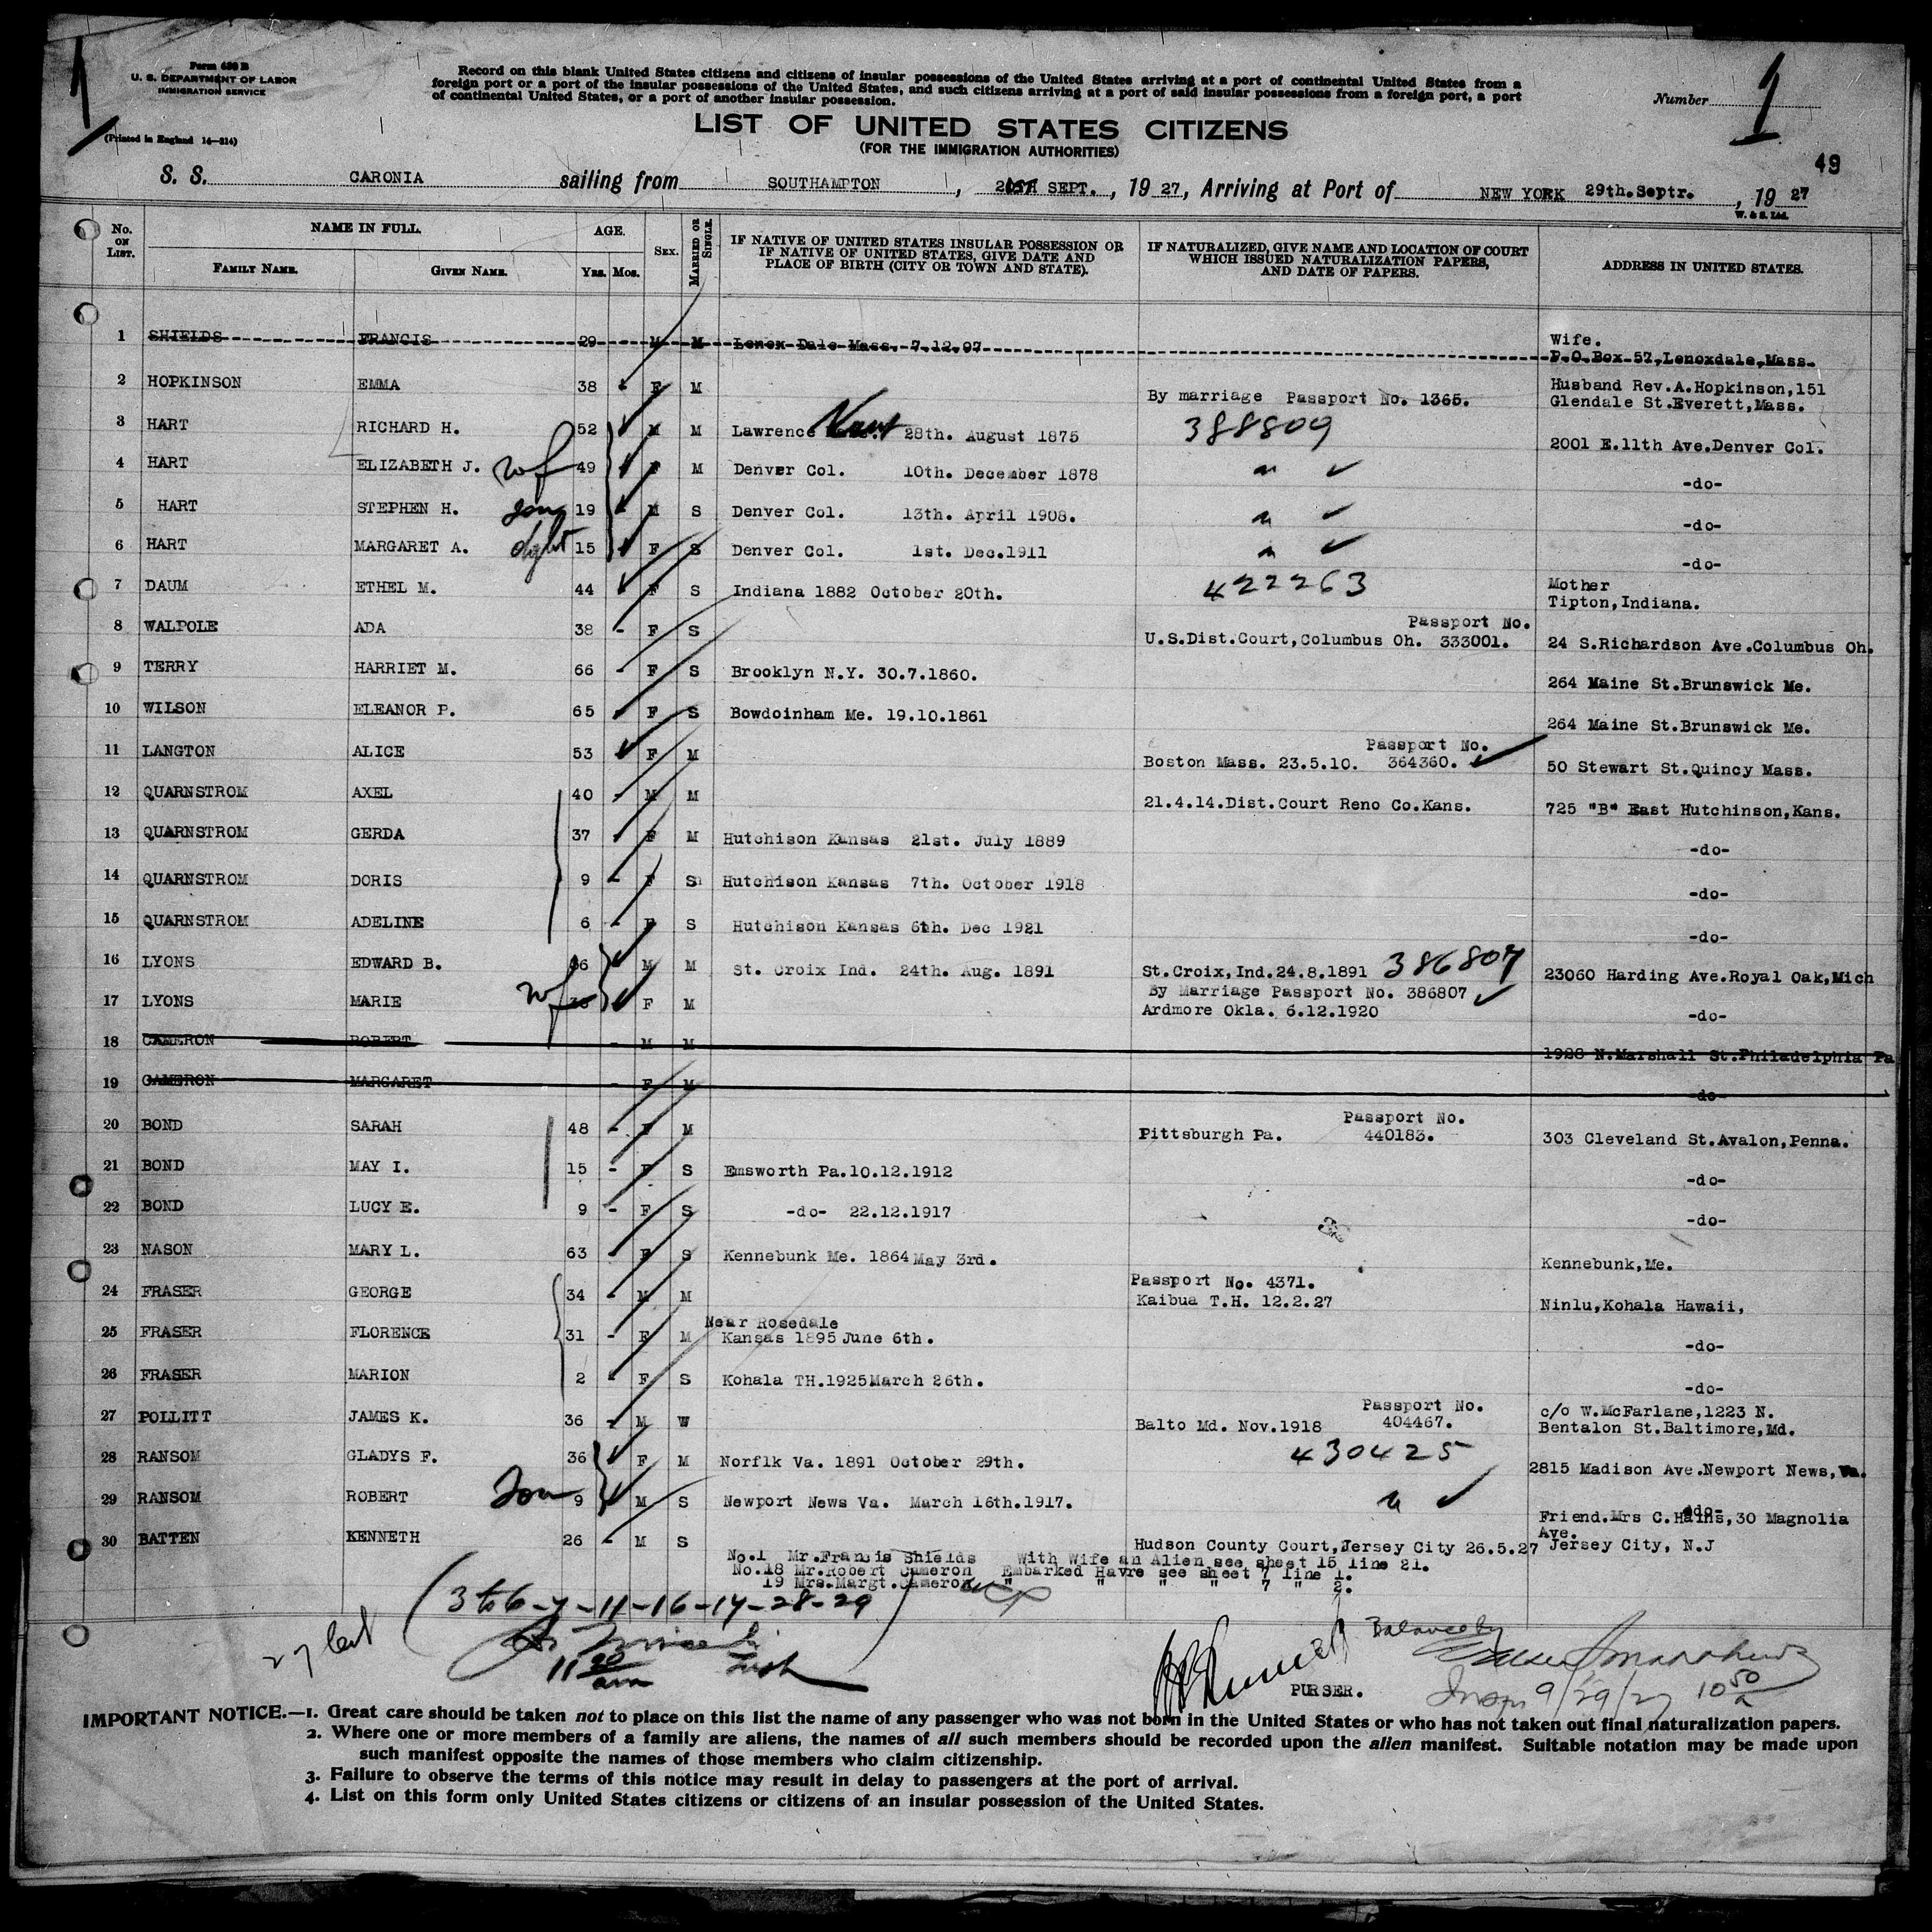 Form 630 B
U. S. DEPARTMENT OF LABOR
IMMIGRATION SERVICE
(Printed in England 14—214)
Record on this blank United States citizens and citizens of insular possessions of the United States arriving at a port of continental United States from a
foreign port or a port of the insular possessions of the United States, and such citizens arriving at a port of said insular possessions from a foreign port, a port
of continental United States, or a port of another insular possession.
Number 1
LIST OF UNITED STATES CITIZENS
(FOR THE IMMIGRATION AUTHORITIES)
49
S. S. CARONIA sailing from SOUTHAMPTON, SEPT., 19 27, Arriving at Port of NEW YORK 29th.Septr., 19 27
W. & S. Ltd.
No. ON LIST. NAME IN FULL. FAMILY NAME. GIVEN NAME. AGE. Yrs. Mos. SEX. MARRIED OR SINGLE. IF NATIVE OF UNITED STATES INSULAR POSSESSION OR IF NATIVE OF UNITED STATES, GIVE DATE AND PLACE OF BIRTH (CITY OR TOWN AND STATE). IF NATURALIZED, GIVE NAME AND LOCATION OF COURT WHICH ISSUED NATURALIZATION PAPERS, AND DATE OF PAPERS. ADDRESS IN UNITED STATES.
1 SHIELDS FRANCIS 29 - M M Lenox Dale Mass. 7.12.97 Wife. P.O.Box 57,Lenoxdale,Mass.
2 HOPKINSON EMMA 38 - F M By marriage Passport No. 1365. Husband Rev.A.Hopkinson,151 Glendale St.Everett,Mass.
3 HART RICHARD H. 52 M M Lawrence 28th. August 1875 388809 2001 E.11th Ave.Denver Col.
4 HART ELIZABETH J. wf 49 F M Denver Col. 10th. December 1878 " ✓ -do-
5 HART STEPHEN H. son 19 M S Denver Col. 13th. April 1908. " ✓ -do-
6 HART MARGARET A. dght 15 F S Denver Col. 1st. Dec.1911 " ✓ -do-
7 DAUM ETHEL M. 44 F S Indiana 1882 October 20th. 422263 Mother Tipton,Indiana.
8 WALPOLE ADA 38 - F S U.S.Dist.Court,Columbus Oh. Passport No. 333001. 24 S.Richardson Ave.Columbus Oh.
9 TERRY HARRIET M. 66 - F S Brooklyn N.Y. 30.7.1860. 264 Maine St.Brunswick Me.
10 WILSON ELEANOR P. 65 F S Bowdoinham Me. 19.10.1861 264 Maine St.Brunswick Me.
11 LANGTON ALICE 53 F M Boston Mass. 23.5.10. Passport No. 364360. ✓ 50 Stewart St.Quincy Mass.
12 QUARNSTROM AXEL 40 - M M 21.4.14.Dist.Court Reno Co.Kans. 725 "B" East Hutchinson,Kans.
13 QUARNSTROM GERDA 37 - F M Hutchison Kansas 21st. July 1889 -do-
14 QUARNSTROM DORIS 9 - F S Hutchison Kansas 7th. October 1918 -do-
15 QUARNSTROM ADELINE 6 - F S Hutchison Kansas 6th. Dec 1921 -do-
16 LYONS EDWARD B. M M St. Croix Ind. 24th. Aug. 1891 St.Croix,Ind.24.8.1891 386807 23060 Harding Ave.Royal Oak,Mich
17 LYONS MARIE wf F M By Marriage Passport No. 386807 ✓ Ardmore Okla. 6.12.1920 -do-
18 CAMERON ROBERT - M M 1928 N.Marshall St.Philadelphia Pa
19 CAMERON MARGARET - F M -do-
20 BOND SARAH 48 - F M Pittsburgh Pa. Passport No. 440183. 303 Cleveland St.Avalon,Penna.
21 BOND MAY I. 15 - F S Emsworth Pa.10.12.1912 -do-
22 BOND LUCY E. 9 - F S -do- 22.12.1917 -do-
23 NASON MARY L. 63 - F S Kennebunk Me. 1864 May 3rd. Kennebunk,Me.
24 FRASER GEORGE 34 - M M Passport No. 4371. Kaibua T.H. 12.2.27 Ninlu,Kohala Hawaii,
25 FRASER FLORENCE 31 - F M Near Rosedale Kansas 1895 June 6th. -do-
26 FRASER MARION 2 - F S Kohala TH.1925 March 26th. -do-
27 POLLITT JAMES K. 36 - M W Balto Md. Nov.1918 Passport No. 404467. c/o W.McFarlane,1223 N. Bentalon St.Baltimore,Md.
28 RANSOM GLADYS F. 36 F M Norflk Va. 1891 October 29th. 430425 2815 Madison Ave.Newport News,Va.
29 RANSOM ROBERT Son 9 M S Newport News Va. March 16th.1917. " ✓ -do-
30 BATTEN KENNETH 26 - M S Hudson County Court,Jersey City 26.5.27 Friend.Mrs C.Hains,30 Magnolia Ave. Jersey City, N.J
No.1 Mr.Francis Shields With Wife an Alien see sheet 15 line 21.
No.18 Mr.Robert Cameron Embarked Havre see sheet 7 line 1.
19 Mrs.Margt.Cameron " " " " 7 " 2.
(3 to 6-7-11-16-17-28-29)
11 20 am
Balance by
PURSER.
Insp 9/29/27 10 50 a
IMPORTANT NOTICE.—1. Great care should be taken not to place on this list the name of any passenger who was not born in the United States or who has not taken out final naturalization papers.
2. Where one or more members of a family are aliens, the names of all such members should be recorded upon the alien manifest. Suitable notation may be made upon
such manifest opposite the names of those members who claim citizenship.
3. Failure to observe the terms of this notice may result in delay to passengers at the port of arrival.
4. List on this form only United States citizens or citizens of an insular possession of the United States.